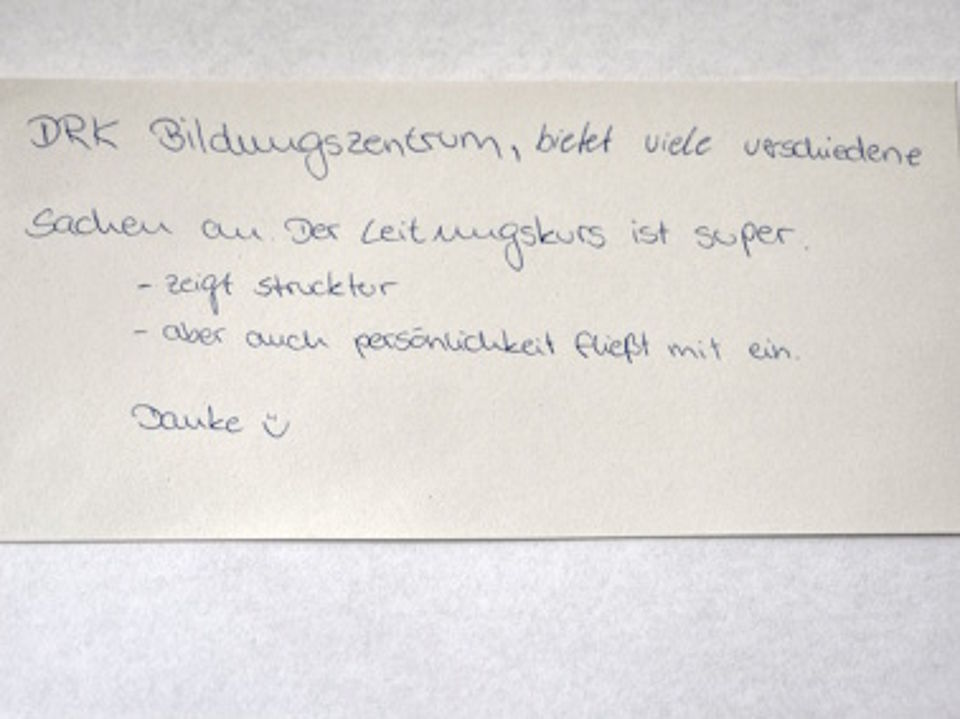 DRK Bildungszentrum, bietet viele verschiedene
Sachen an. Der Leitungskurs ist super.
- zeigt strucktur
- aber auch persönlichkeit fließt mit ein.
Danke ü